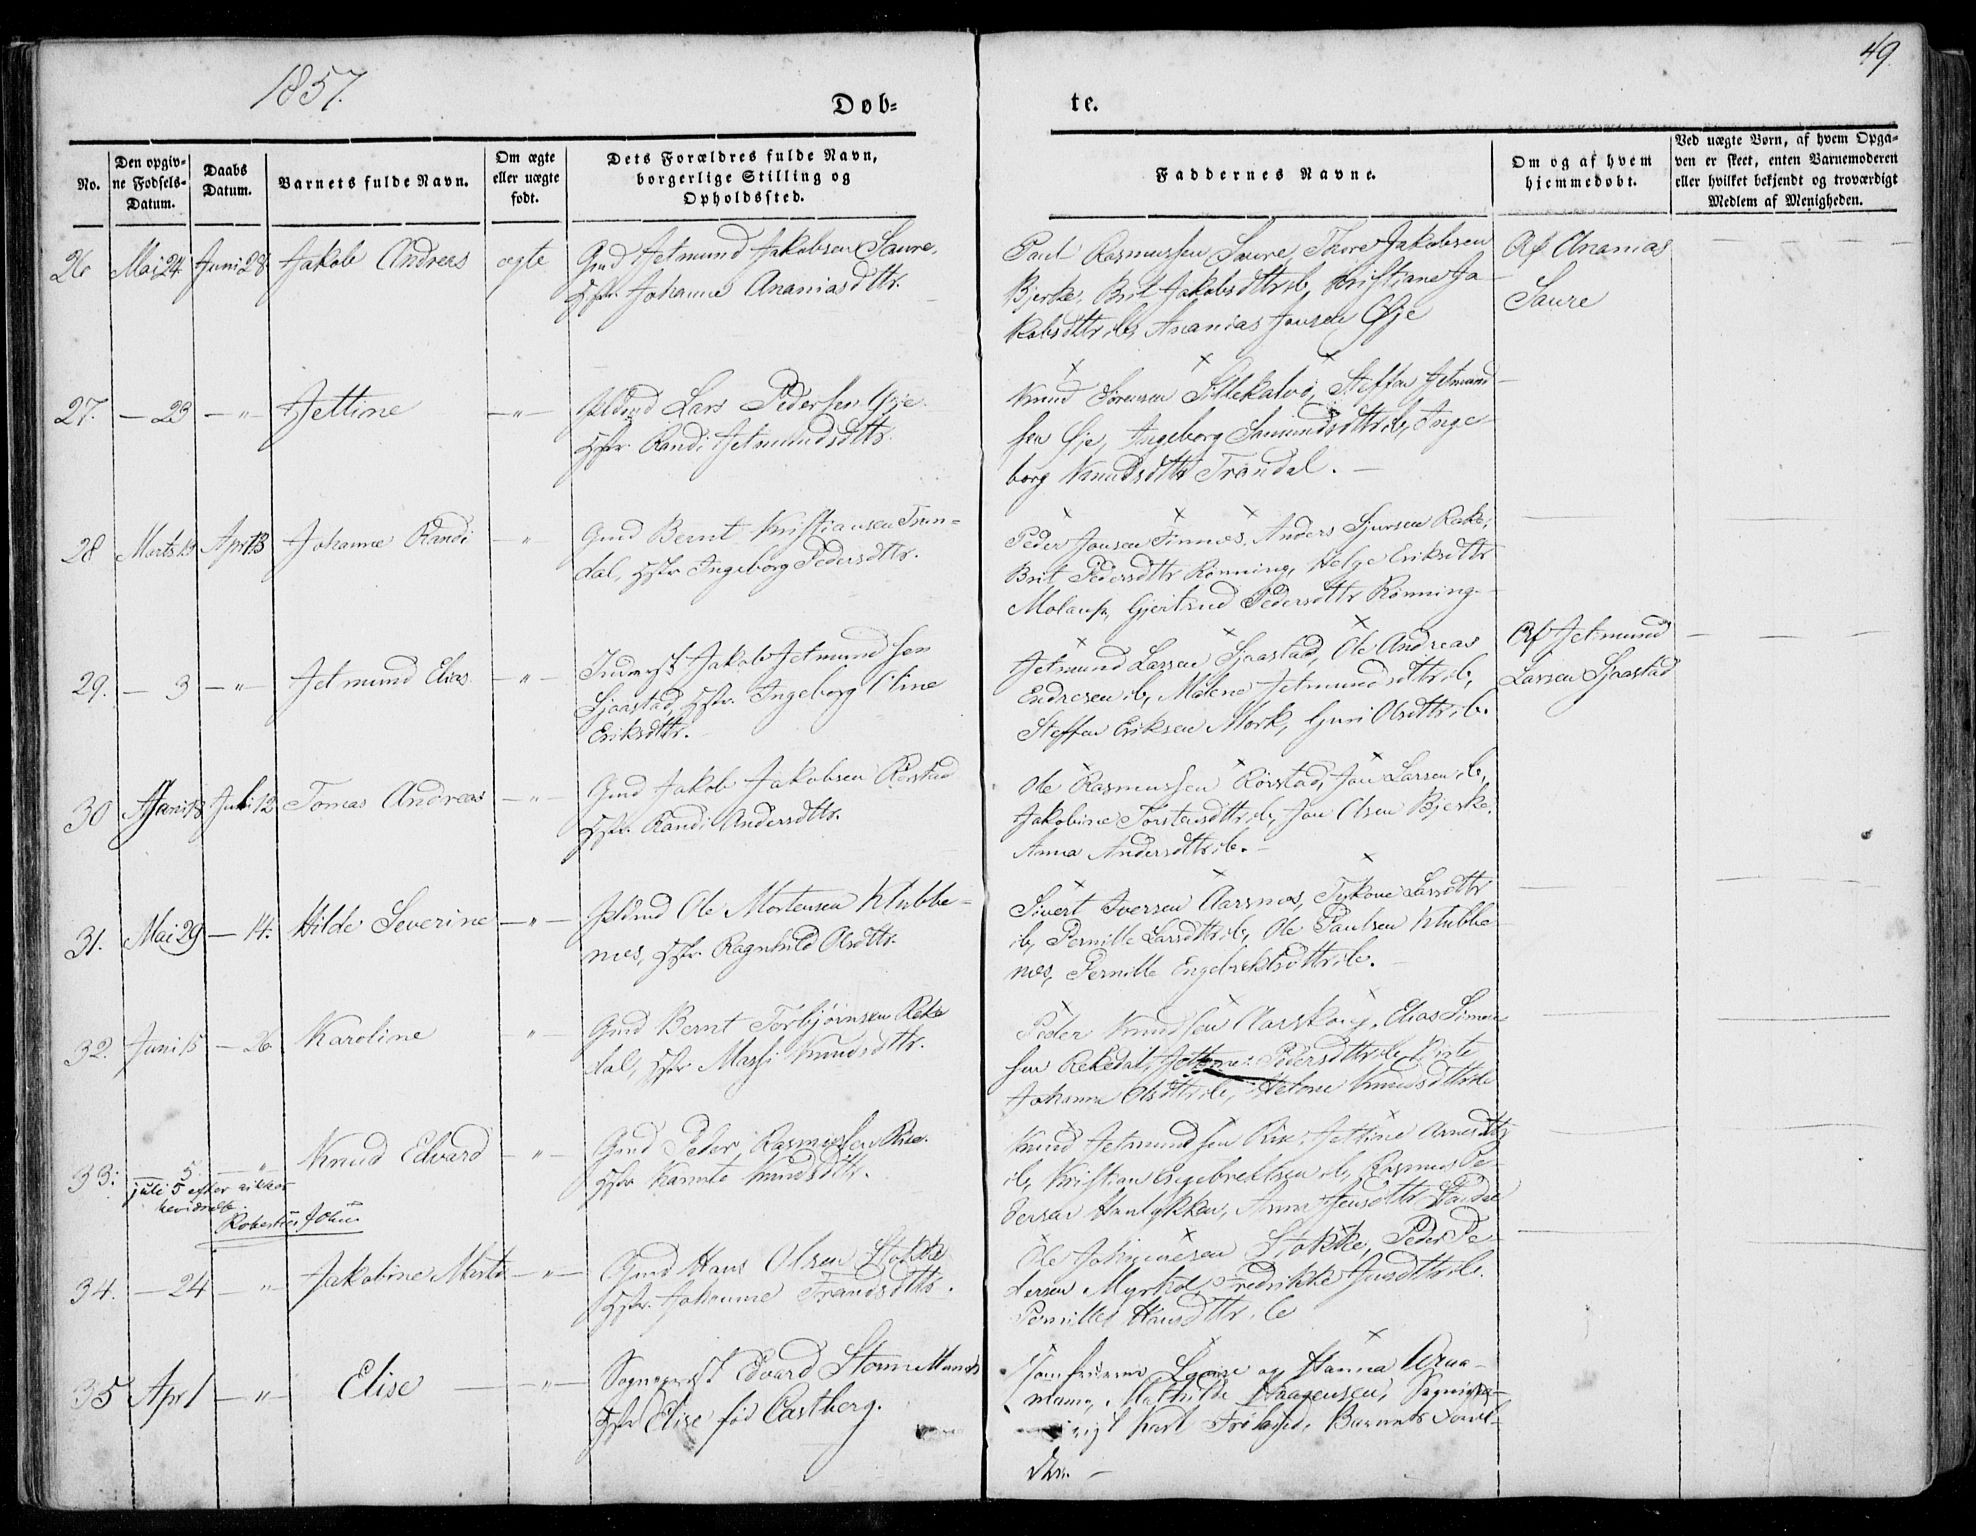 1857.
49.
Døb-
te.
No.
Den opgiv-
ne Fødsels-
Datum.
Daabs
Datum.
Barnets fulde Navn.
Om ægte
eller uægte
født.
Dets Forældres fulde Navn,
borgerlige Stilling og
Opholdssted.
Faddernes Navne.
Om og af hvem
hjemmedøbt.
Ved uægte Børn, af hvem Opga-
ven er skeet, enten Barnemoderen
eller hvilket bekjendt og troværdigt
Medlem af Menigheden.
26 Mai 24 Juni 28 Jakob Andreas ægte Gmd Jetmund Jakobsen Saure,
Hstr. Johanne Ananiasdttr.
Paul Rasmussen Saure, Thore Jakobsen
Bjerke, Brit Jakobsdttr ib, Kristiane Ja-
kobsdttr ib, Ananias Jonsen Øje
Af Ananias
Saure
27. — 23 — „ — Jettine — „ — Lars Pedersen Øje
Hstr Randi Jetmundsdttr.
Knud Sørensen Sillekalvø, Steffen Jetmund-
sen Øje, Ingeborg Samundsdttr ib, Inge-
borg Knudsdttr Trandal. —
28 Marts 13 Apr 13 Johanne Randi — „ Gmd Bernt Kristiansen Tran-
dal, Hstr Ingeborg Pedersdttr.
Peder Jonsen Finnes, Anders Sjursen
Brit Pedersdttr Rönning, Helge Eriksdttr
Gjertrud Pedersdttr Rönning
29. — 3 — „ — Jetmund Elias — „ — Jakob Jetmundsen
Sjaastad, Hstr. Ingeborg Oline
Eriksdttr.
Jetmund Larsen Sjaastad, Ole Andreas
Endresen ib, Malene Jetmundsdttr ib,
Steffen Eriksen Mork, Guri Olsdttr ib.
Af Jetmund
Larsen Sjaastad
30 Juni 18 Juli 12 Tomas Andreas — „ — Gmd Jakob Jakobsen Rörstad
Hstr. Randi Andersdttr.
Ole Rasmussen Rörstad, Jon Larsen ib,
Jakobine Torstensdttr ib, Jon Olsen Bjerke,
Anna Andersdttr ib. —
31. Mai 29 — 14. Hilde Severine — „ — Ole Mortensen Klubbe-
nes, Hstr. Ragnhild Olsdttr.
Sivert Iversen Aarsnes, Larsdttr
ib, Pernille Larsdttr ib, Ole Paulsen Klubbe
nes, Pernille Engebrektsdttr ib.
32. Juni 15 — 26 Karoline „ Gmd Bernt Torbjørnsen Reke
dal, Hstr Knudsdttr.
Peder Knudsen Aarskog, Elias Simon
sen Rekedal, Pedersdttr ib,
Johanna Olsdttr ib, Knudsdttr ib
33. — 5. — „ Knud Edvard — „ — Gmd Peder Rasmussen Rise.
juli 5 efter
Robertus John
Hstr Knudsdttr.
Knud Jetmundsen Rise, Jettine Arnesdttr
ib, Kristian Engebrektsen ib, Rasmus Pe-
dersen Anne Jensdttr
34. — 24 — „ Jakobine — „ — Gmd Hans Olsen Stokke
Hstr. Johanne Frandsdttr.
Ole Johannesen Stokke, Peder Pe-
dersen Fredrikke Jensdttr ib.
Pernille Hansdttr ib
35 Apr 1 — „ — Elise — — „ — Sognepræst Edvard Storm Munch
Hstr Elise fød Castberg.
Jomfruerne og Hanna
mann, Mathilde Haagensen,
Karl Barnets